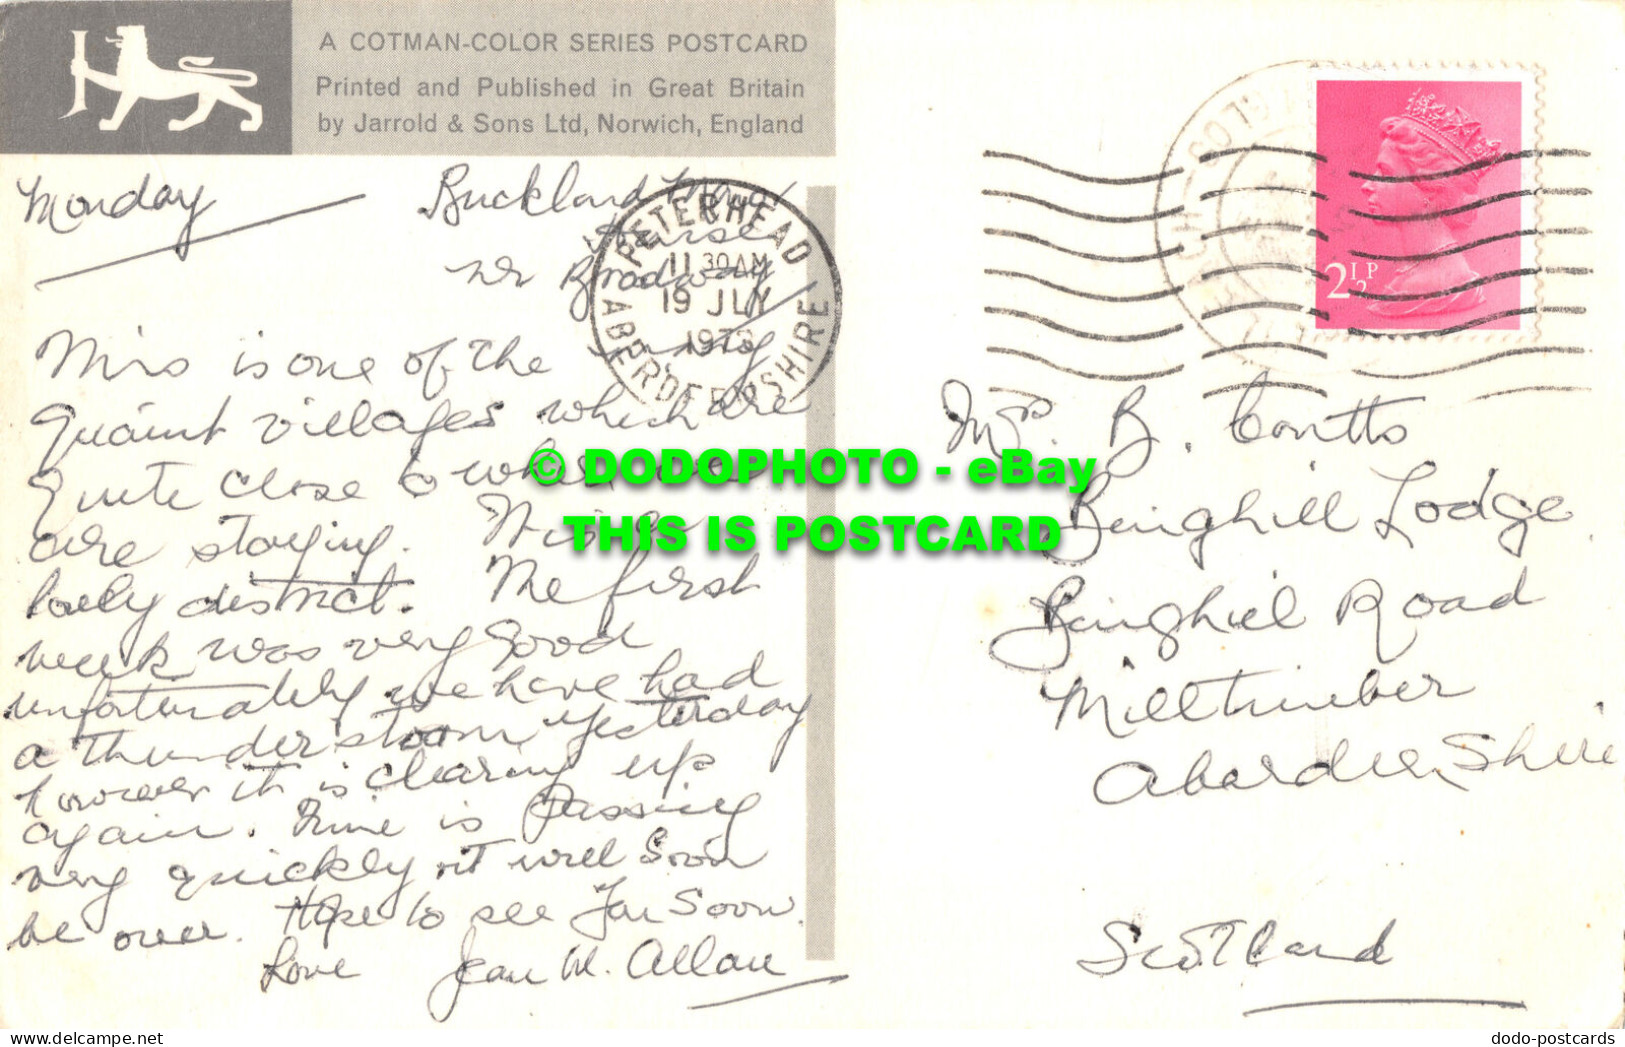 A COTMAN-COLOR SERIES POSTCARD
Printed and Published in Great Britain
by Jarrold & Sons Ltd, Norwich, England
Monday
Buckland
Nr Broadway
PETERHEAD
11 30 AM
19 JLY
1973
ABERDEENSHIRE
This is one of the many
Quaint villages which are
Quite close to where we
are staying. This is a
lovely district. The first
week was very good
unfortunately we have had
a thunder storm yesterday
however it is clearing up
again. Time is passing
very quickly it will soon
be over. Hope to see you soon.
Love Jean M. Allan
2½P
Mrs. B. Coutts
Binghill Lodge
Binghill Road
Milltimber
Aberdeenshire
Scotland
© DODOPHOTO - eBay
THIS IS POSTCARD
dodo-postcards